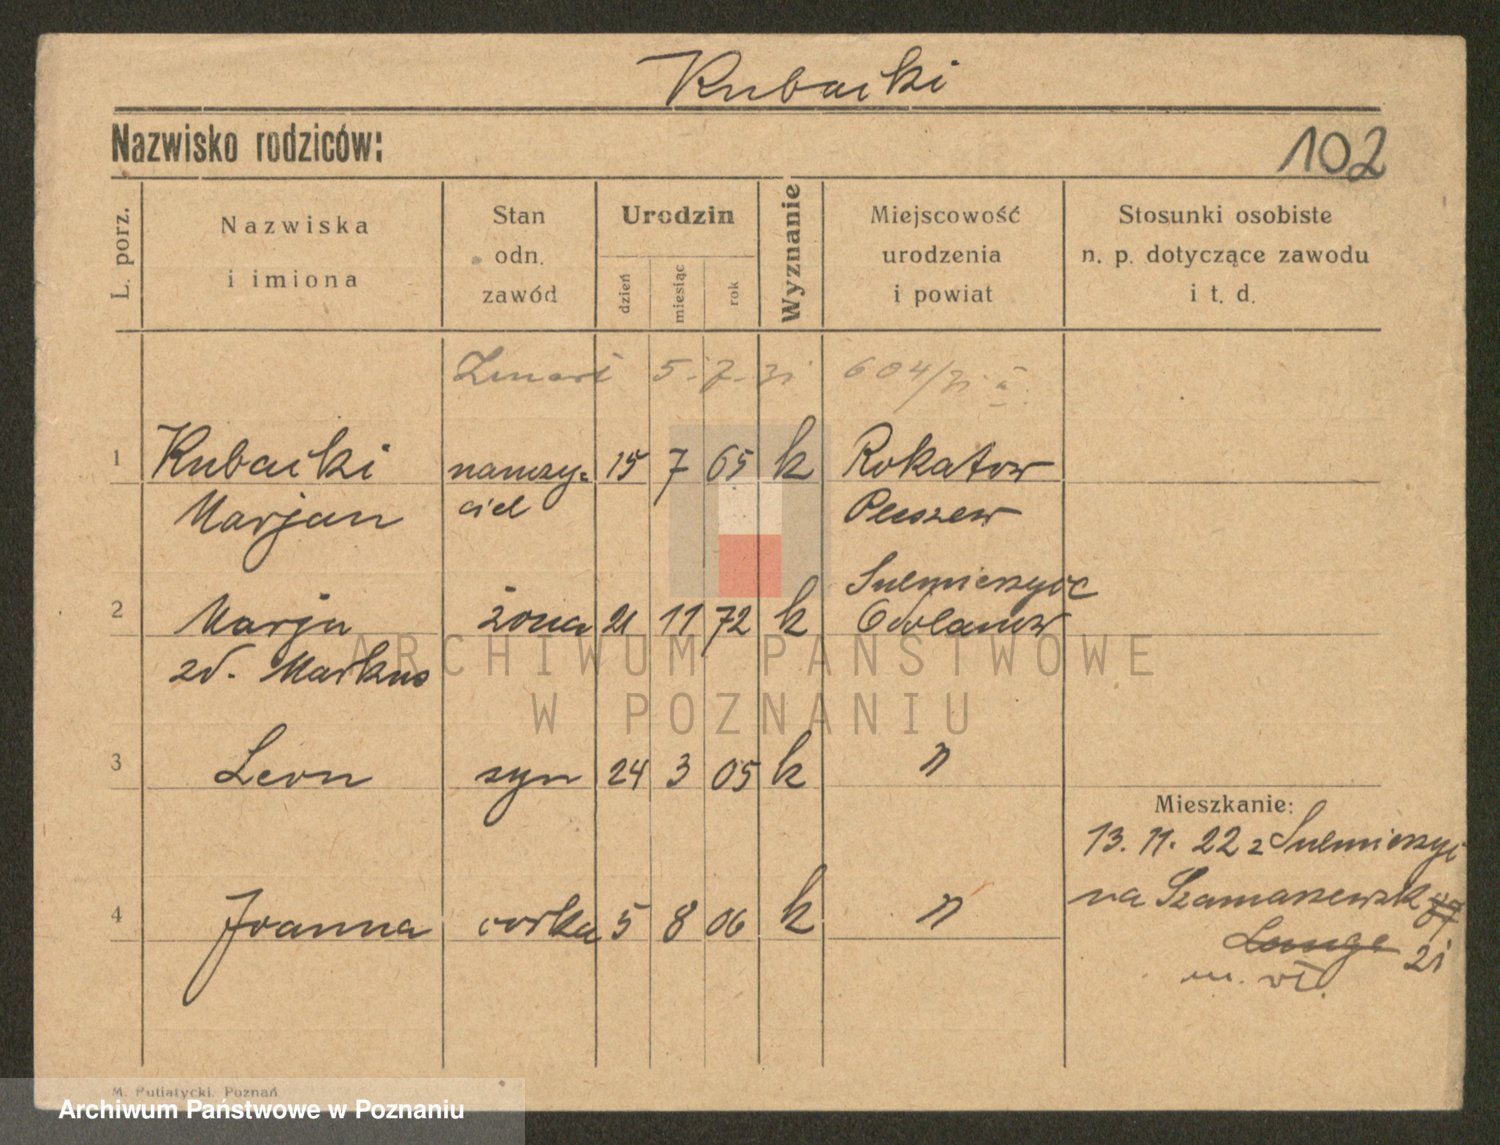 Kubacki
Nazwisko rodziców:
102
L. porz.
Nazwiska
i imiona
Stan
odn.
zawód
Urodzin
dzień
miesiąc
rok
Wyznanie
Miejscowość
urodzenia
i powiat
Stosunki osobiste
n. p. dotyczące zawodu
i t. d.
Zmarł 5.7.31 604/31
1 Kubacki nauczy= 15 7 65 k Rokatow
Marjan ciel Pleszew
Sulmierzyce
2 Marja żona 21 11 72 k Odolanow
zd. Markus
3 Leon syn 24 3 05 k "
Mieszkanie:
13. 11. 22 z Sulmierzyc
4 Joanna corka 5 8 06 k "
na Szamarzewsk
Lange 21
m. VI.
M. Putiatycki, Poznań
ARCHIWUM PAŃSTWOWE
W POZNANIU
Archiwum Państwowe w Poznaniu